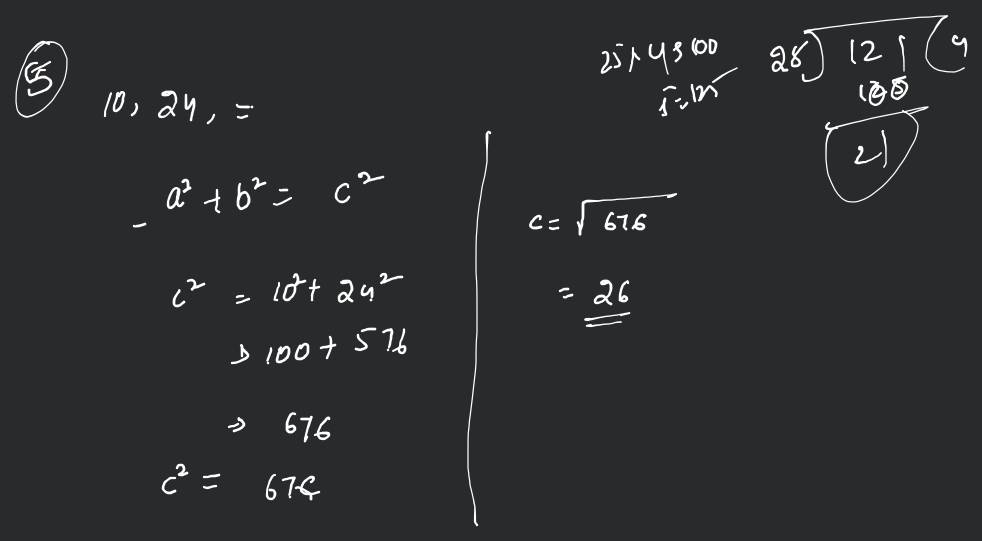 5
10, 24, =
a² + b² = c²
c² = 10² + 24²
⇒ 100 + 576
⇒ 676
c² = 676
c = √676
= 26
25 × 4 = 100
5 = 125
121
100
21